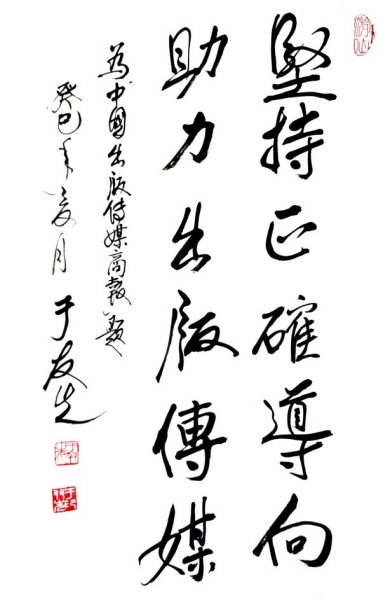 堅持正確導向
助力出版傳媒
為中國出版传媒商報題
癸巳年夏月
于友先